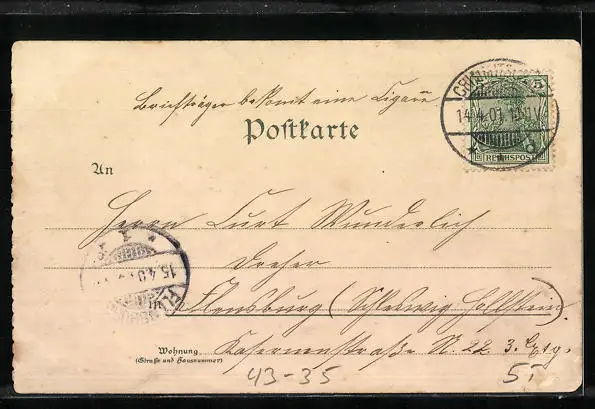 Briefträger bekomt eine Cigarre
5
14.4.01.
REICHSPOST
Postkarte
An
Herrn Curt Wunderlich
Dreher
15.4.0
Flensburg (Schleswig Hollstein)
Wohnung
(Straße und Hausnummer)
Kasernenstraße N. 22 3. Etg.
43-35
5,-